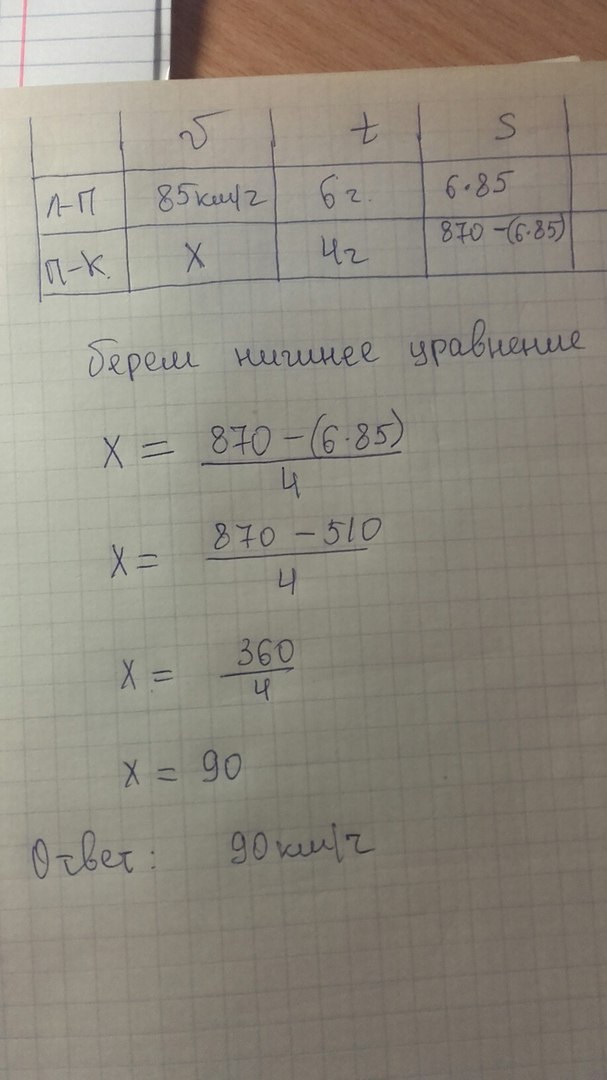 v t S
Л-П 85км/г 6г. 6·85
П-К. X 4г 870-(6·85)
берем нигинее уравнение
X = 870-(6·85) / 4
X = 870-510 / 4
X = 360 / 4
X = 90
Ответ: 90км/ч